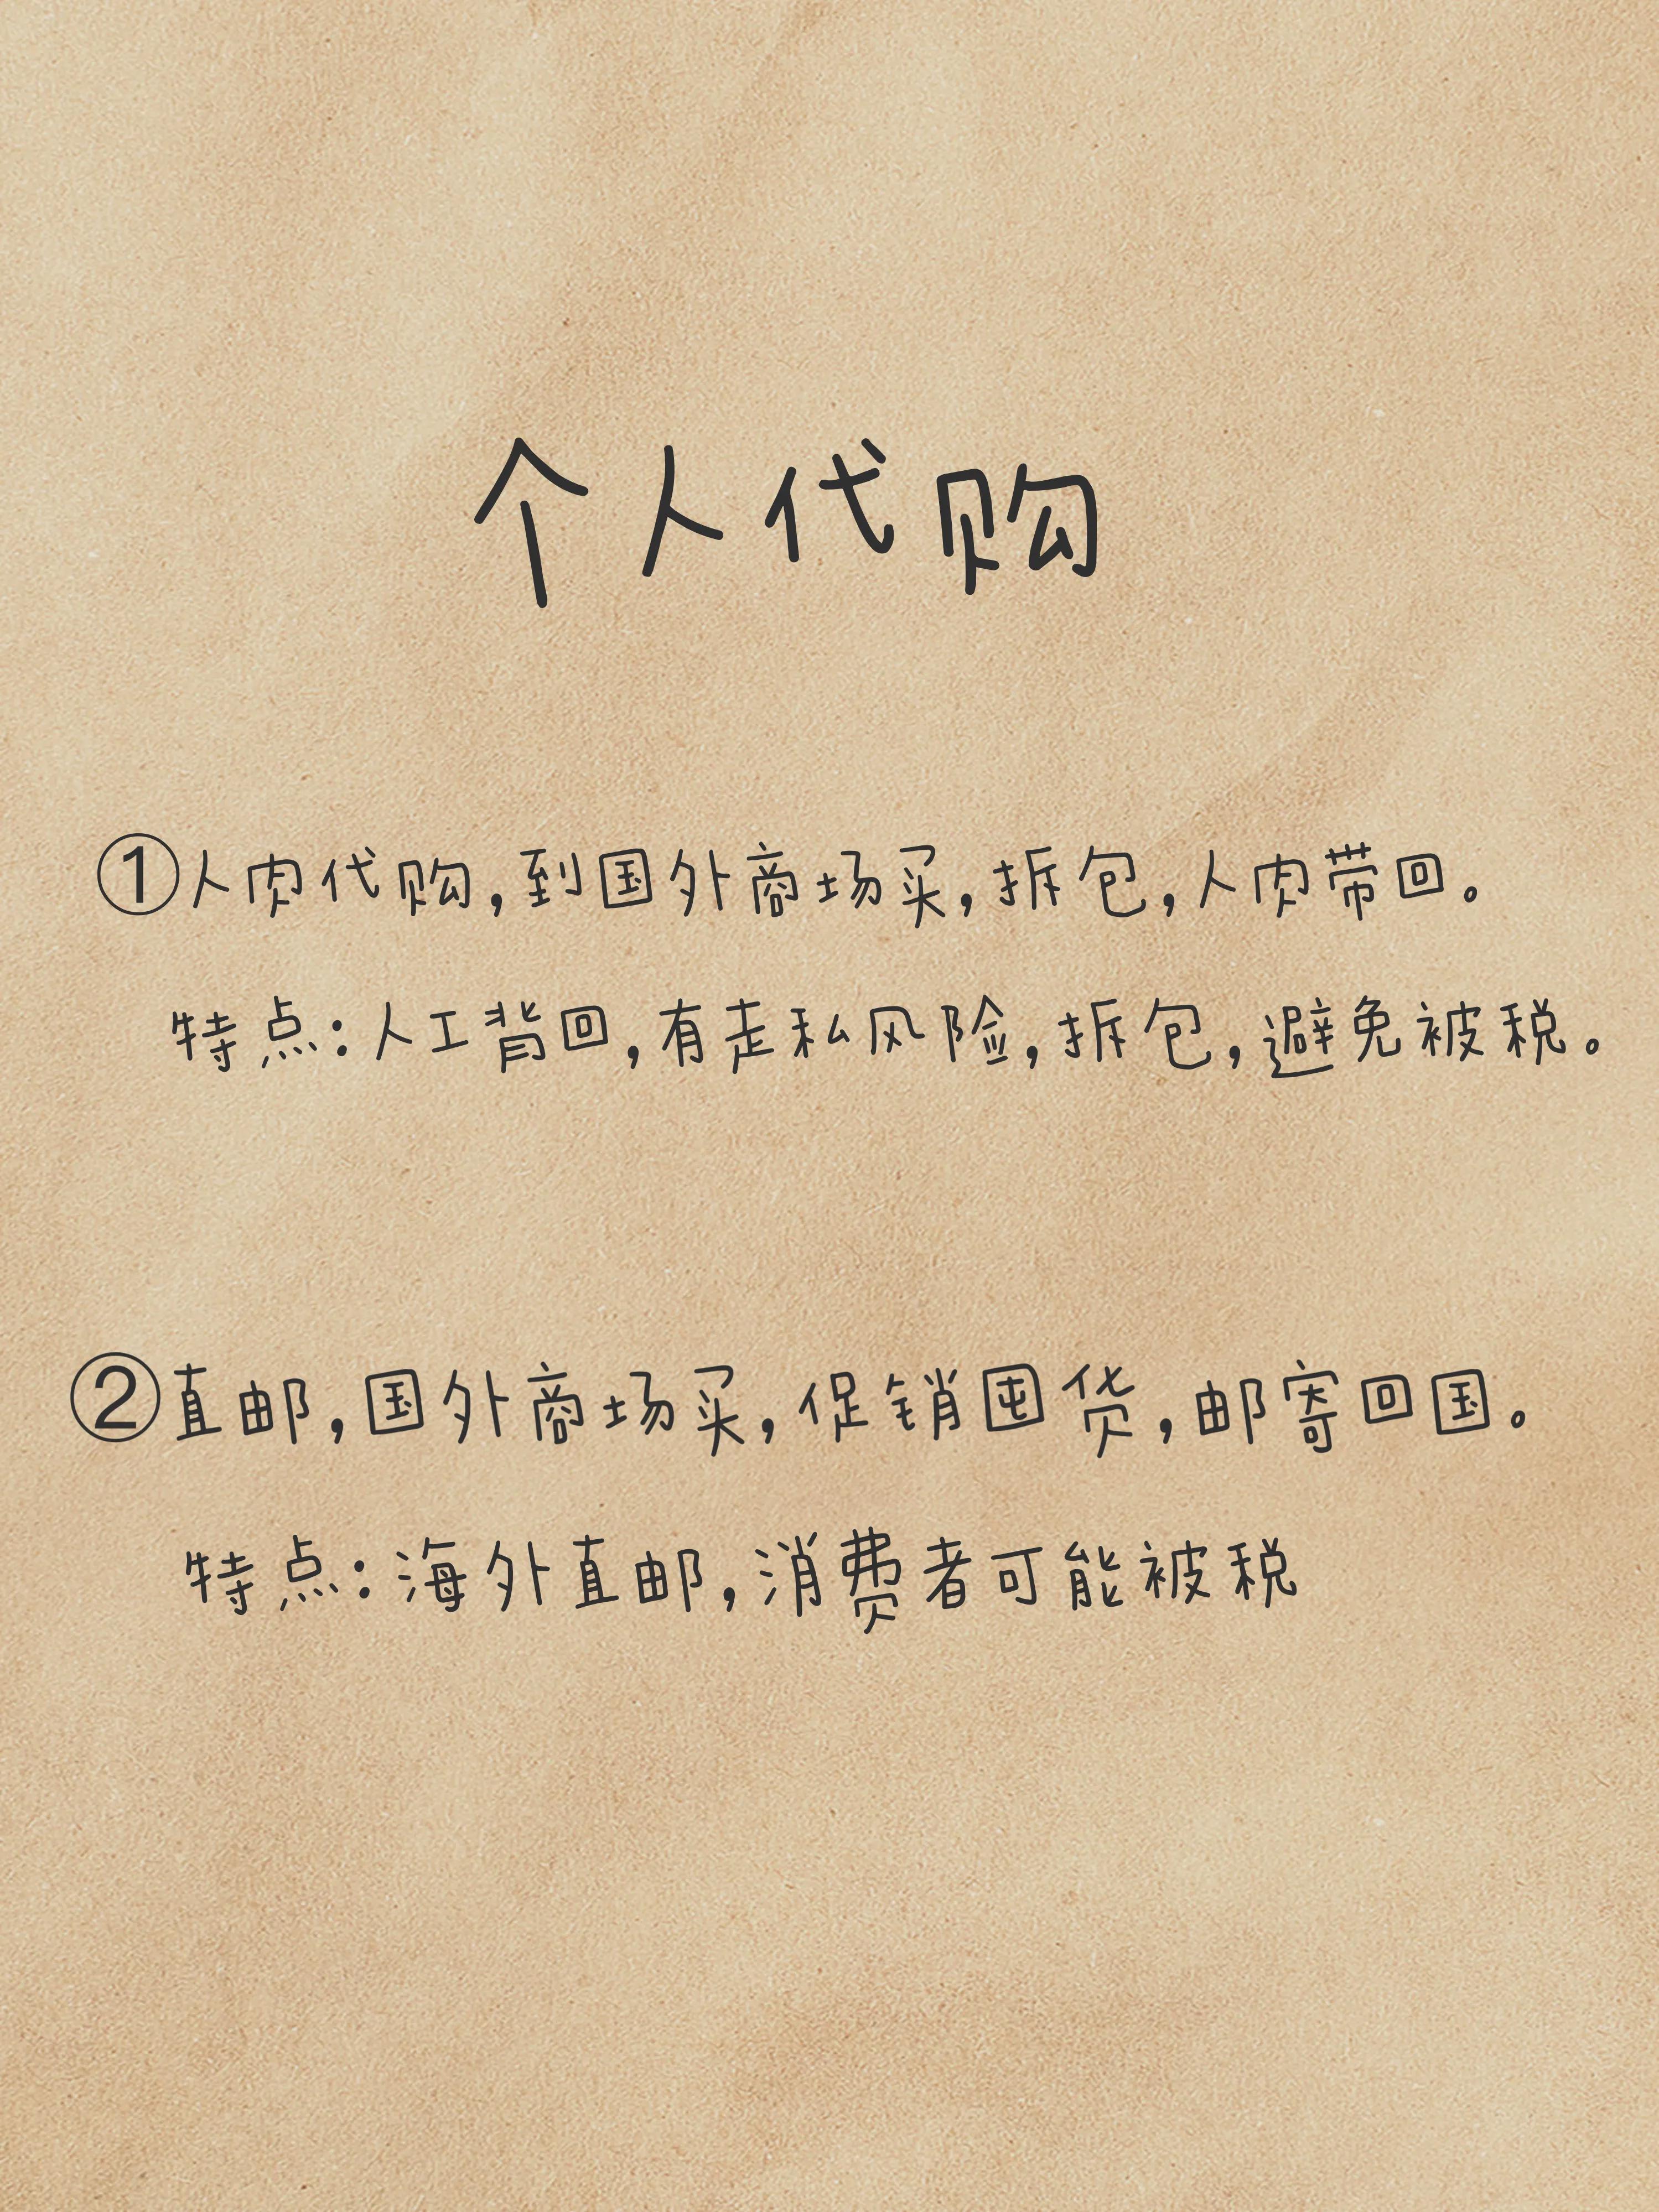 个人代购
①人肉代购,到国外商场买,拆包,人肉带回。
特点:人工背回,有走私风险,拆包,避免被税。
②直邮,国外商场买,促销囤货,邮寄回国。
特点:海外直邮,消费者可能被税